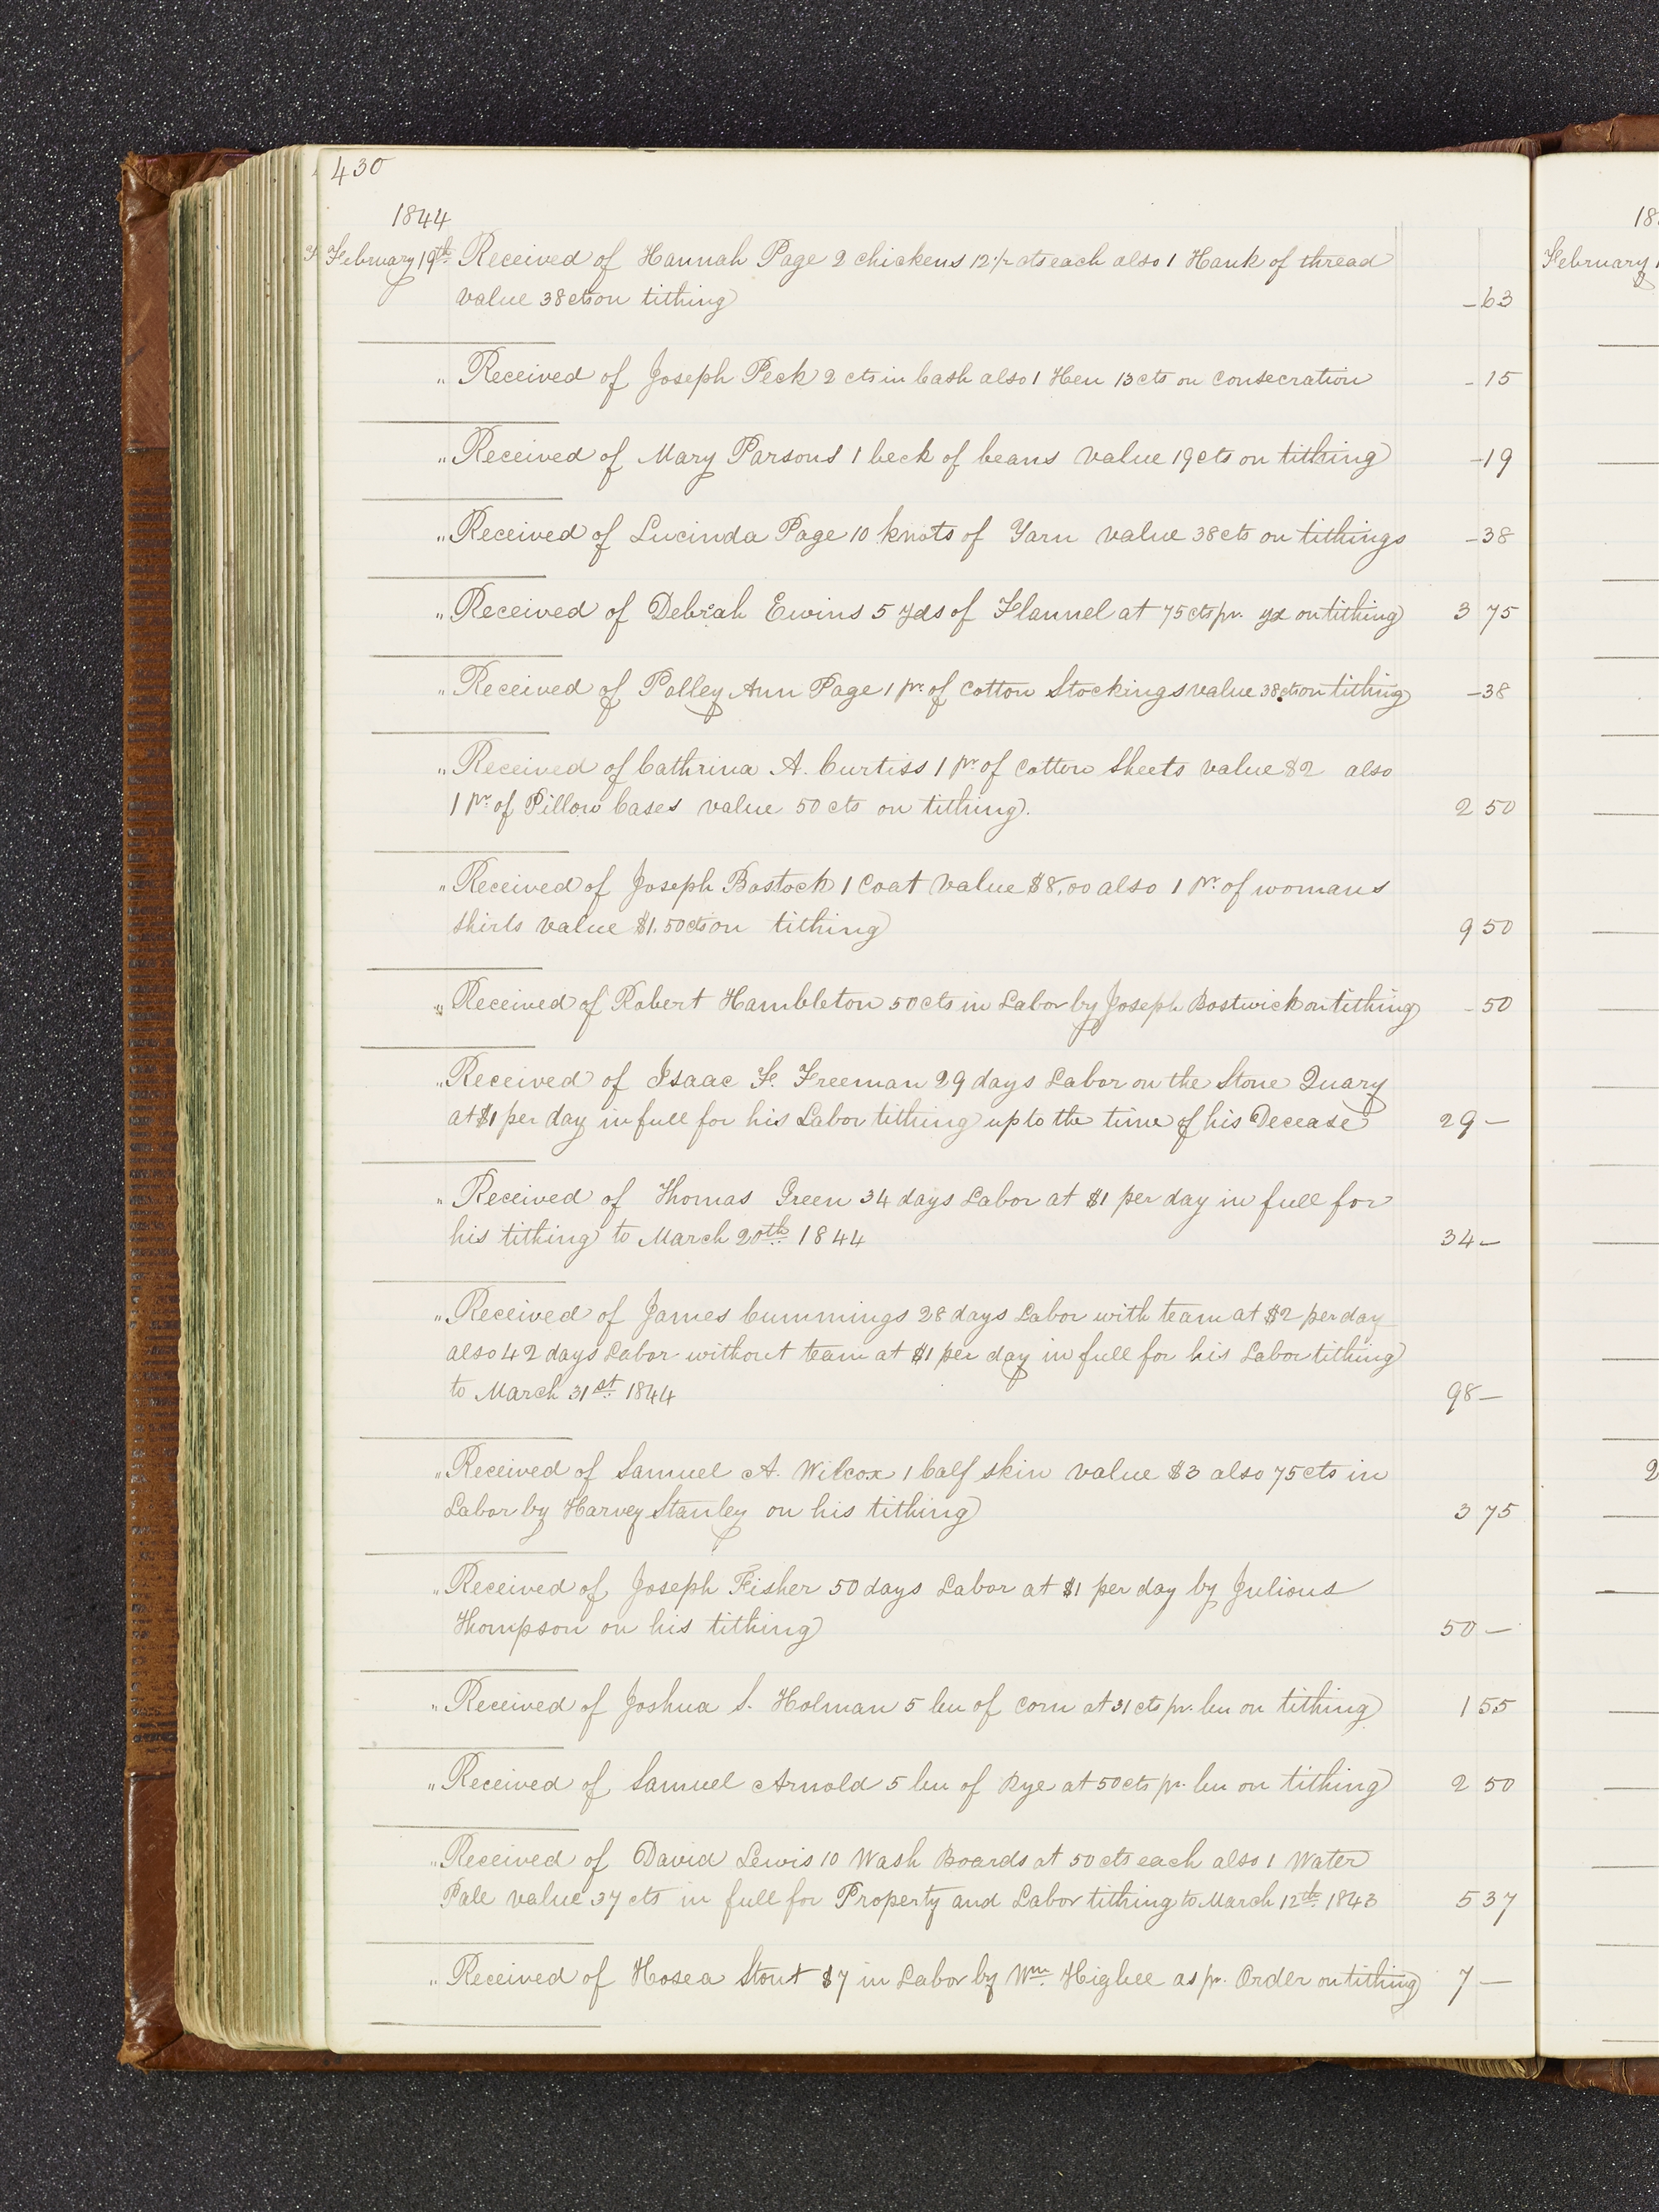 430
1844
February 19th Received of Hannah Page 2 chickens 12 1/2 cts each also 1 Hank of thread
value 38 cts on tithing -63
" Received of Joseph Peck 2 cts in Cash also 1 Hen 13 cts on Consecration -15
" Received of Mary Parsons 1 beck of beans value 19 cts on tithing -19
" Received of Lucinda Page 10 knots of Yarn value 38 cts on tithings -38
" Received of Debrah Ewins 5 yds of Flannel at 75 cts pr. yd on tithing 3 75
" Received of Polley Ann Page 1 pr. of Cotton Stockings value 38 cts on tithing -38
" Received of Cathrina A. Curtiss 1 pr. of Cotton Sheets value $2 also
1 pr. of Pillow Cases value 50 cts on tithing. 2 50
" Received of Joseph Bostock 1 Coat value $8,00 also 1 pr. of womans
Shirts value $1.50 cts on tithing 9 50
" Received of Robert Hambleton 50 cts in Labor by Joseph Bostwick on tithing -50
" Received of Isaac F. Freeman 29 days Labor on the Stone Quary
at $1 per day in full for his Labor tithing up to the time of his Decease 29 -
" Received of Thomas Green 34 days Labor at $1 per day in full for
his tithing to March 20th 1844 34 -
" Received of James Cummings 28 days Labor with team at $2 per day
also 42 days Labor without team at $1 per day in full for his Labor tithing
to March 31st 1844 98 -
" Received of Samuel A. Wilcox 1 Calf skin value $3 also 75 cts in
Labor by Harvey Stanley on his tithing 3 75
" Received of Joseph Fisher 50 days Labor at $1 per day by Julious
Thompson on his tithing 50 -
" Received of Joshua S. Holman 5 bu of corn at 31 cts pr. bu on tithing 1 55
" Received of Samuel Arnold 5 bu of Rye at 50 cts pr. bu on tithing 2 50
" Received of David Lewis 10 Wash Boards at 50 cts each also 1 Water
Pale value 37 cts in full for Property and Labor tithing to March 12th 1843 5 37
" Received of Hosea Stout $7 in Labor by Wm Higbee as pr. Order on tithing 7 -
18
February 1
2